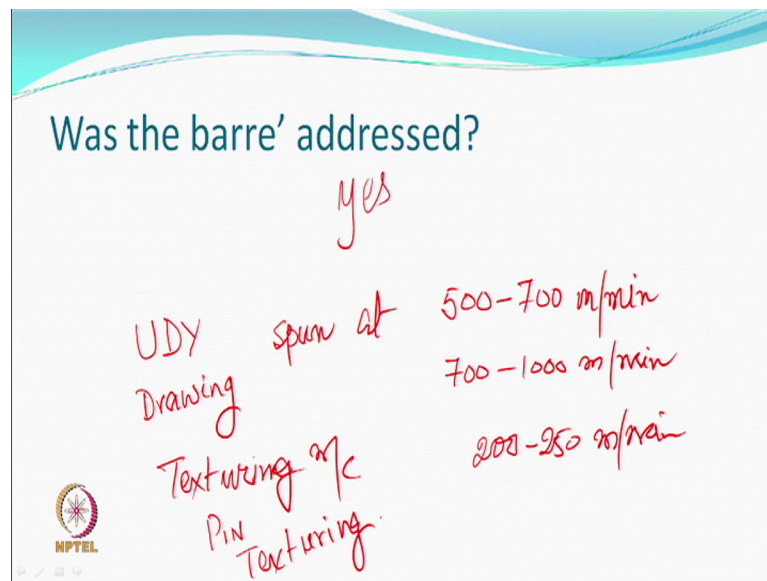 Was the barre’ addressed?
yes
UDY spun at 500-700 m/min
Drawing 700-1000 m/min
Texturing m/c 200-250 m/min
PIN Texturing.
NPTEL